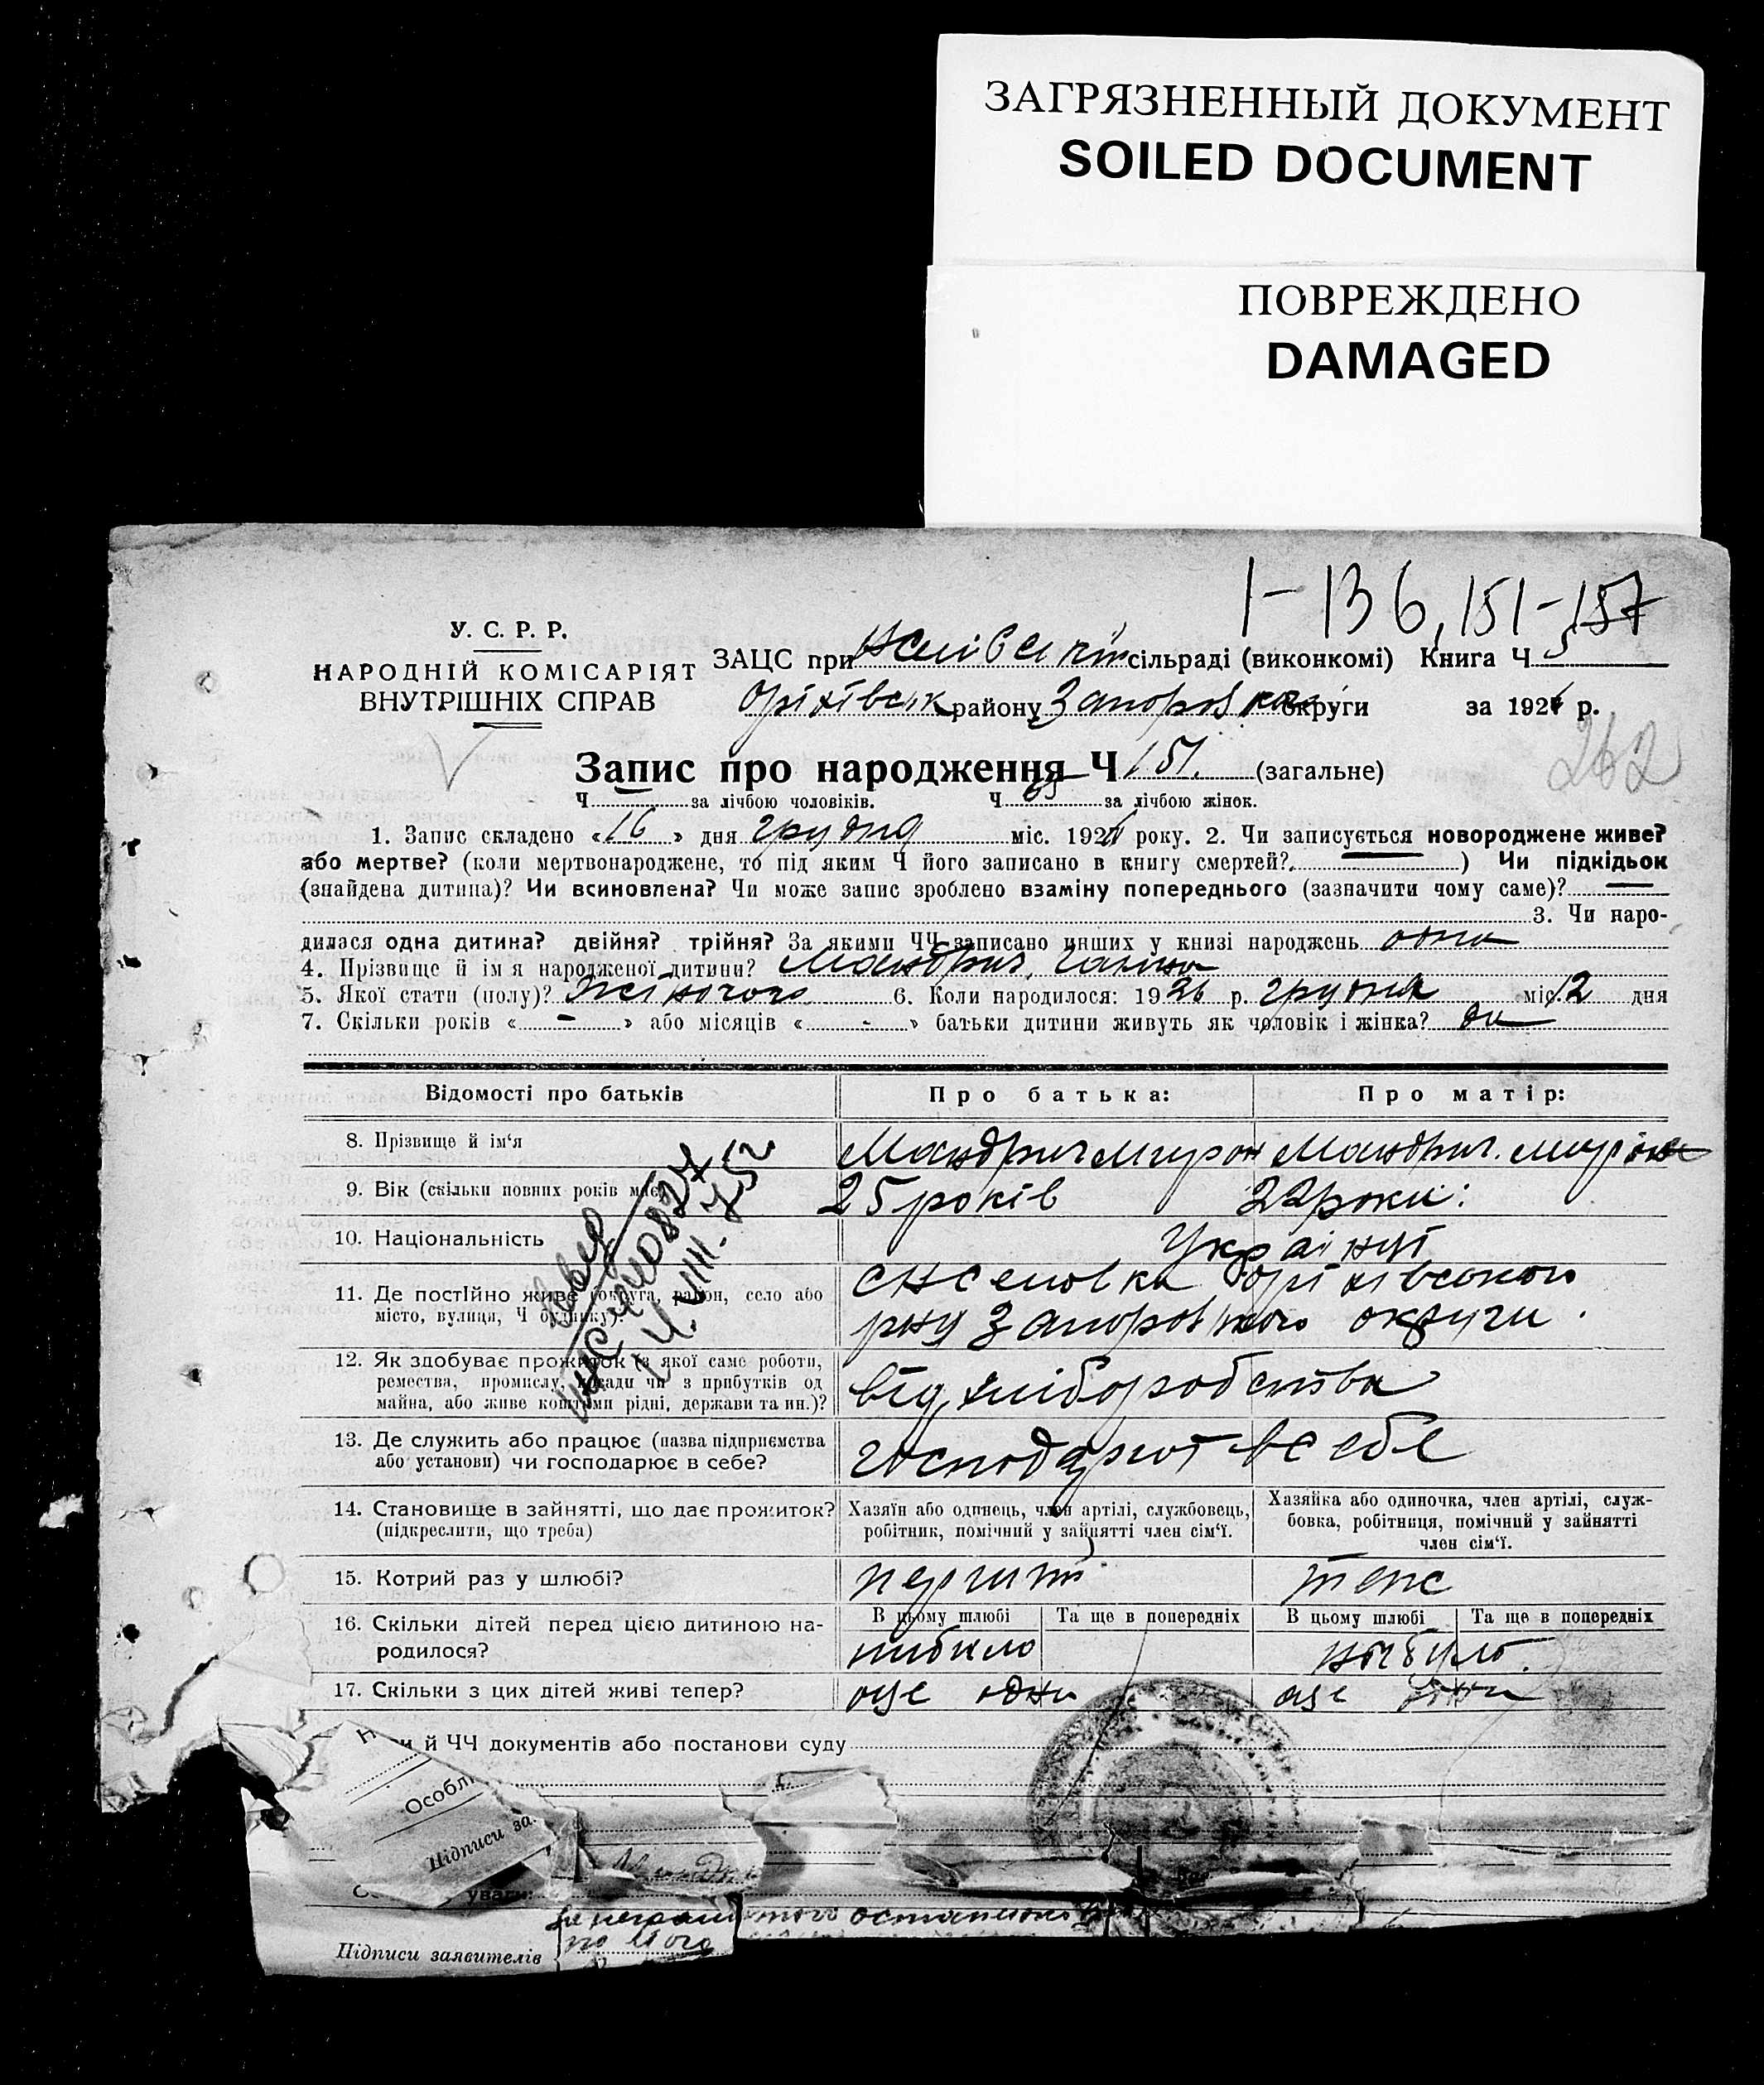 ЗАГРЯЗНЕННЫЙ ДОКУМЕНТ
SOILED DOCUMENT
ПОВРЕЖДЕНО
DAMAGED
1-136, 151-157
У. С. Р. Р.
НАРОДНІЙ КОМІСАРІЯТ
ВНУТРІШНІХ СПРАВ
ЗАЦС при сільраді (виконкомі) Книга Ч. 5
Оріхівськ району Запорізької округи за 1926 р.
262
Запис про народження Ч 151. (загальне)
Ч. — за лічбою чоловіків. Ч. 65 за лічбою жінок.
1. Запис складено «16» дня грудня міс. 1926 року. 2. Чи записується новороджене живе?
або мертве? (коли мертвонароджене, то під яким Ч його записано в книгу смертей? —) Чи підкідьок
(знайдена дитина)? Чи всиновлена? Чи може запис зроблено взаміну попереднього (зазначити чому саме)? —
3. Чи наро-
дилася одна дитина? двійня? трійня? За якими ЧЧ записано инших у книзі народжень одна
4. Прізвище й імя народженої дитини? Мандрич, Галина
5. Якої стати (полу)? Жіночого 6. Коли народилося: 1926 р. грудня міс. 12 дня
7. Скільки років « - » або місяців « - » батьки дитини живуть як чоловік і жінка?
Відомості про батьків Про батька: Про матір:
8. Прізвище й ім'я Мандрич Мирон Мандрич.
9. Вік (скільки повних років має) 25 років 22 роки:
10. Національність Українці
11. Де постійно живе (округа, район, село або місто, вулиця, Ч будинку)? Оріхівського
рну Запорізького округи.
12. Як здобуває прожиток (з якої саме роботи,
ремества, промислу, посади чи з прибутків од
майна, або живе коштами рідні, держави та ин.)? від хліборобства
13. Де служить або працює (назва підприємства
або установи) чи господарює в себе? господарют в себе
14. Становище в зайнятті, що дає прожиток?
(підкреслити, що треба)
Хазяїн або одинець, член артілі, службовець,
робітник, помічний у зайнятті член сім'ї.
Хазяйка або одиночка, член артілі, служ-
бовка, робітниця, помічний у зайнятті
член сім'ї.
15. Котрий раз у шлюбі? перший теж
16. Скільки дітей перед цією дитиною на-
родилося?
В цьому шлюбі Та ще в попередніх В цьому шлюбі Та ще в попередніх
небуло
17. Скільки з цих дітей живі тепер? оце одна оце одна
й ЧЧ документів або постанови суду
Особл
Підписи за
уваги:
Підписи заявителів